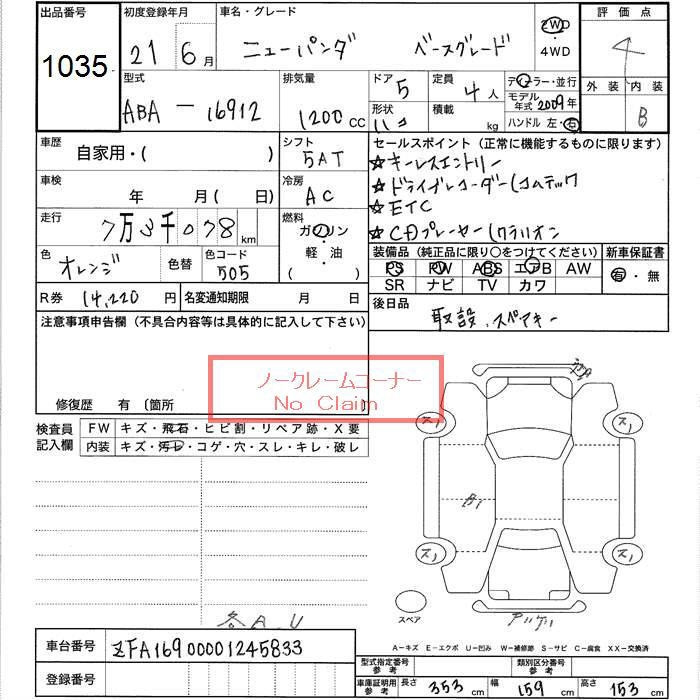 出品番号 初度登録年月 車名・グレード 2WD ・4WD 評価点
1035 21年 6月 ニューパンダ ベースグレード 4
型式 排気量 ドア 定員 ディーラー・並行 外装 内装
ABA-16912 1200 CC 5 4人 モデル年式 2009年 B
形状 積載 kg ハンドル 左・右
車歴 シフト セールスポイント (正常に機能するものに限ります)
自家用・( ) 5AT ☆キーレスエントリー
車検 冷房 ☆ドライブレコーダー(コムテック
年 月( 日) AC ☆ETC
走行 燃料 ☆CDプレーヤー(クラリオン
7万3千078km ガソリン
軽・油
( )
色 色替 色コード 装備品 (純正品に限り〇をつけてください) 新車保証書
オレンジ 505 PS PW ABS エアB AW 有・無
SR ナビ TV カワ
R券 14,220円 名変通知期限 月 日 後日品
取説、スペアキー
注意事項申告欄 (不具合内容等は具体的に記入して下さい)
ノークレームコーナー
No Claim
修復歴 有 〔箇所 〕
検査員記入欄 FW キズ・飛石・ヒビ割・リペア跡・X要
内装 キズ・汚レ・コゲ・穴・スレ・キレ・破レ
スリ スリ
スリ スリ
スペア
各A、U
A-キズ E-エクボ U-凹み W-補修跡 S-サビ C-腐食 XX-交換済
車台番号 ZFA16900001245833
登録番号
型式指定番号 参考 類別区分番号 参考
車庫証明用 参考 長さ 353cm 幅 159cm 高さ 153cm